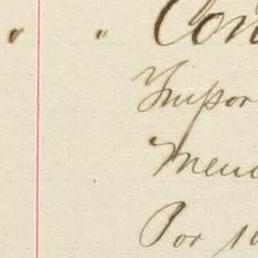 " " Con
Impor
Mena
Por 1